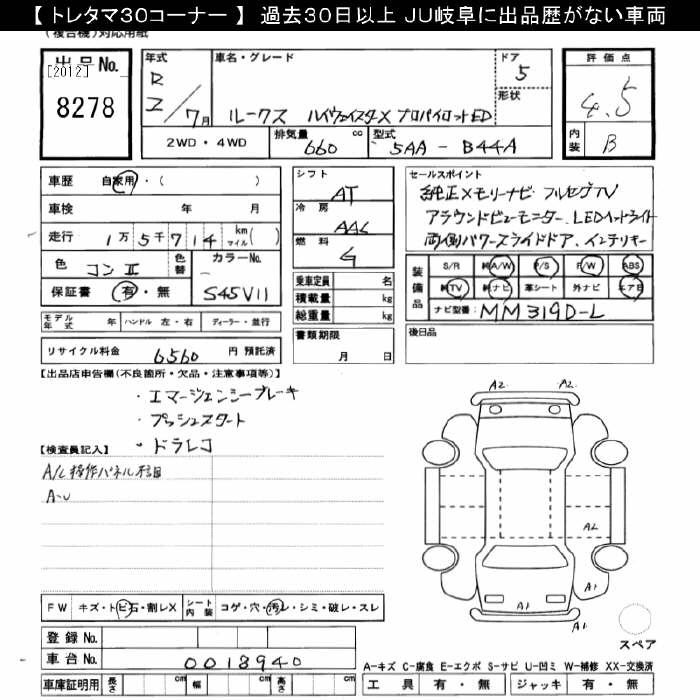 【 トレタマ30コーナー 】 過去30日以上 JU岐阜に出品歴がない車両
(複合機)対応用紙
出品No.
[2012]
8278
年式
R
2/7月
車名・グレード
ルークス ハイウェイスターX プロパイロットED
ドア
5
形状
評価点
4.5
内装
B
2WD・4WD
排気量
660
cc
型式
5AA - B44A
車歴
自家用・( )
車検 年 月
走行 1万5千714 km マイル( )
色 コンⅡ
色替
カラーNo.
S45V11
保証書 有・無
モデル年式 年
ハンドル 左・右
ディーラー・並行
リサイクル料金 6560 円 預託済
シフト
AT
冷房
AAC
燃料
G
乗車定員 名
積載量 kg
総重量 kg
書類期限
月 日
セールスポイント
純正メモリーナビ フルセグTV
アラウンドビューモニター、LEDヘッドライト
両側パワースライドドア、インテリキー
装備品
S/R 純A/W P/S P/W ABS
純TV 純ナビ 革シート 外ナビ エアB
ナビ型番 MM319D-L
後日品
【出品店申告欄(不良箇所・欠品・注意事項等)】
・エマージェンシーブレーキ
・プッシュスタート
・ドラレコ
【検査員記入】
A/C操作パネル
A-U
A2 A2
A2
A1
A1
A1
スペア
FW キズ・トビ石・割レX
シート内装 コゲ・穴・汚レ・シミ・破レ・スレ
登録No.
車台No. 0018940
車庫証明用 長さ cm 幅 cm 高さ cm
A-キズ C-腐食 E-エクボ S-サビ U-凹ミ W-補修 XX-交換済
工具 有・無 ジャッキ 有・無